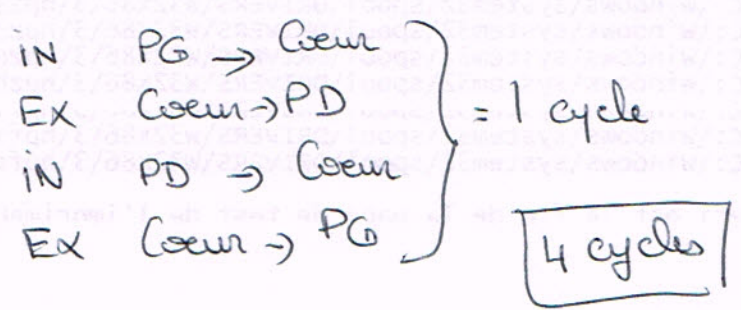 IN PG → Coeur
Ex Coeur → PD
IN PD → Coeur
Ex Coeur → PG
= 1 cycle
4 cycles